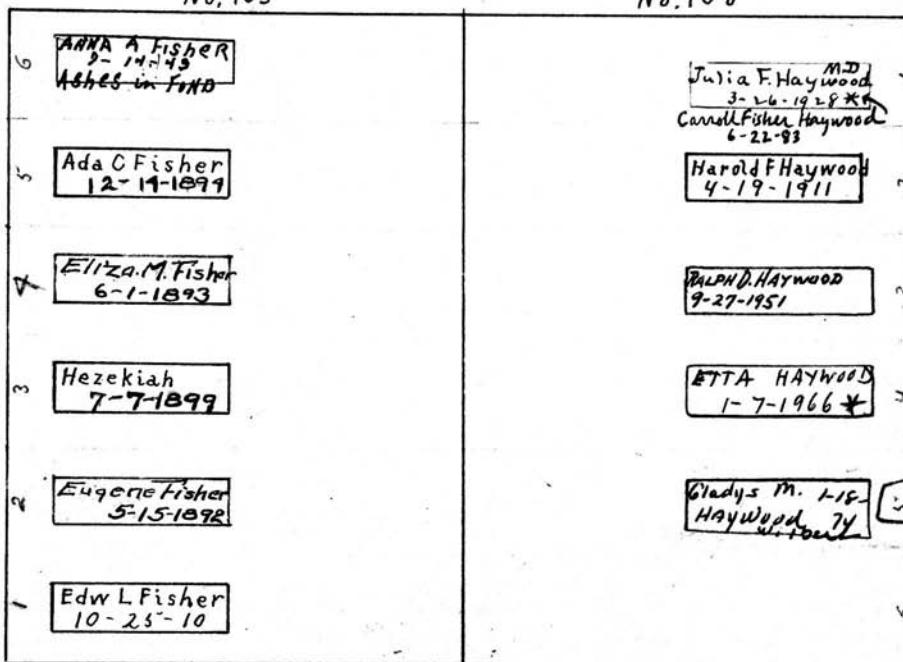 6
ANNA A FisheR
9-14-49
Ashes in FOND
5
Ada C Fisher
12-14-1899
4
Eliza.M.Fisher
6-1-1893
3
Hezekiah
7-7-1899
2
Eugene Fisher
5-15-1892
1
Edw L Fisher
10-25-10
Julia F. Haywood M.D
3-26-1928 *
Carroll Fisher Haywood
6-22-83
Harold F Haywood
4-19-1911
2
RALPH D. HAYWOOD
9-27-1951
3
ETTA HAYWOOD
1-7-1966 *
4
Gladys M. 1-18-
HAYWOOD 74